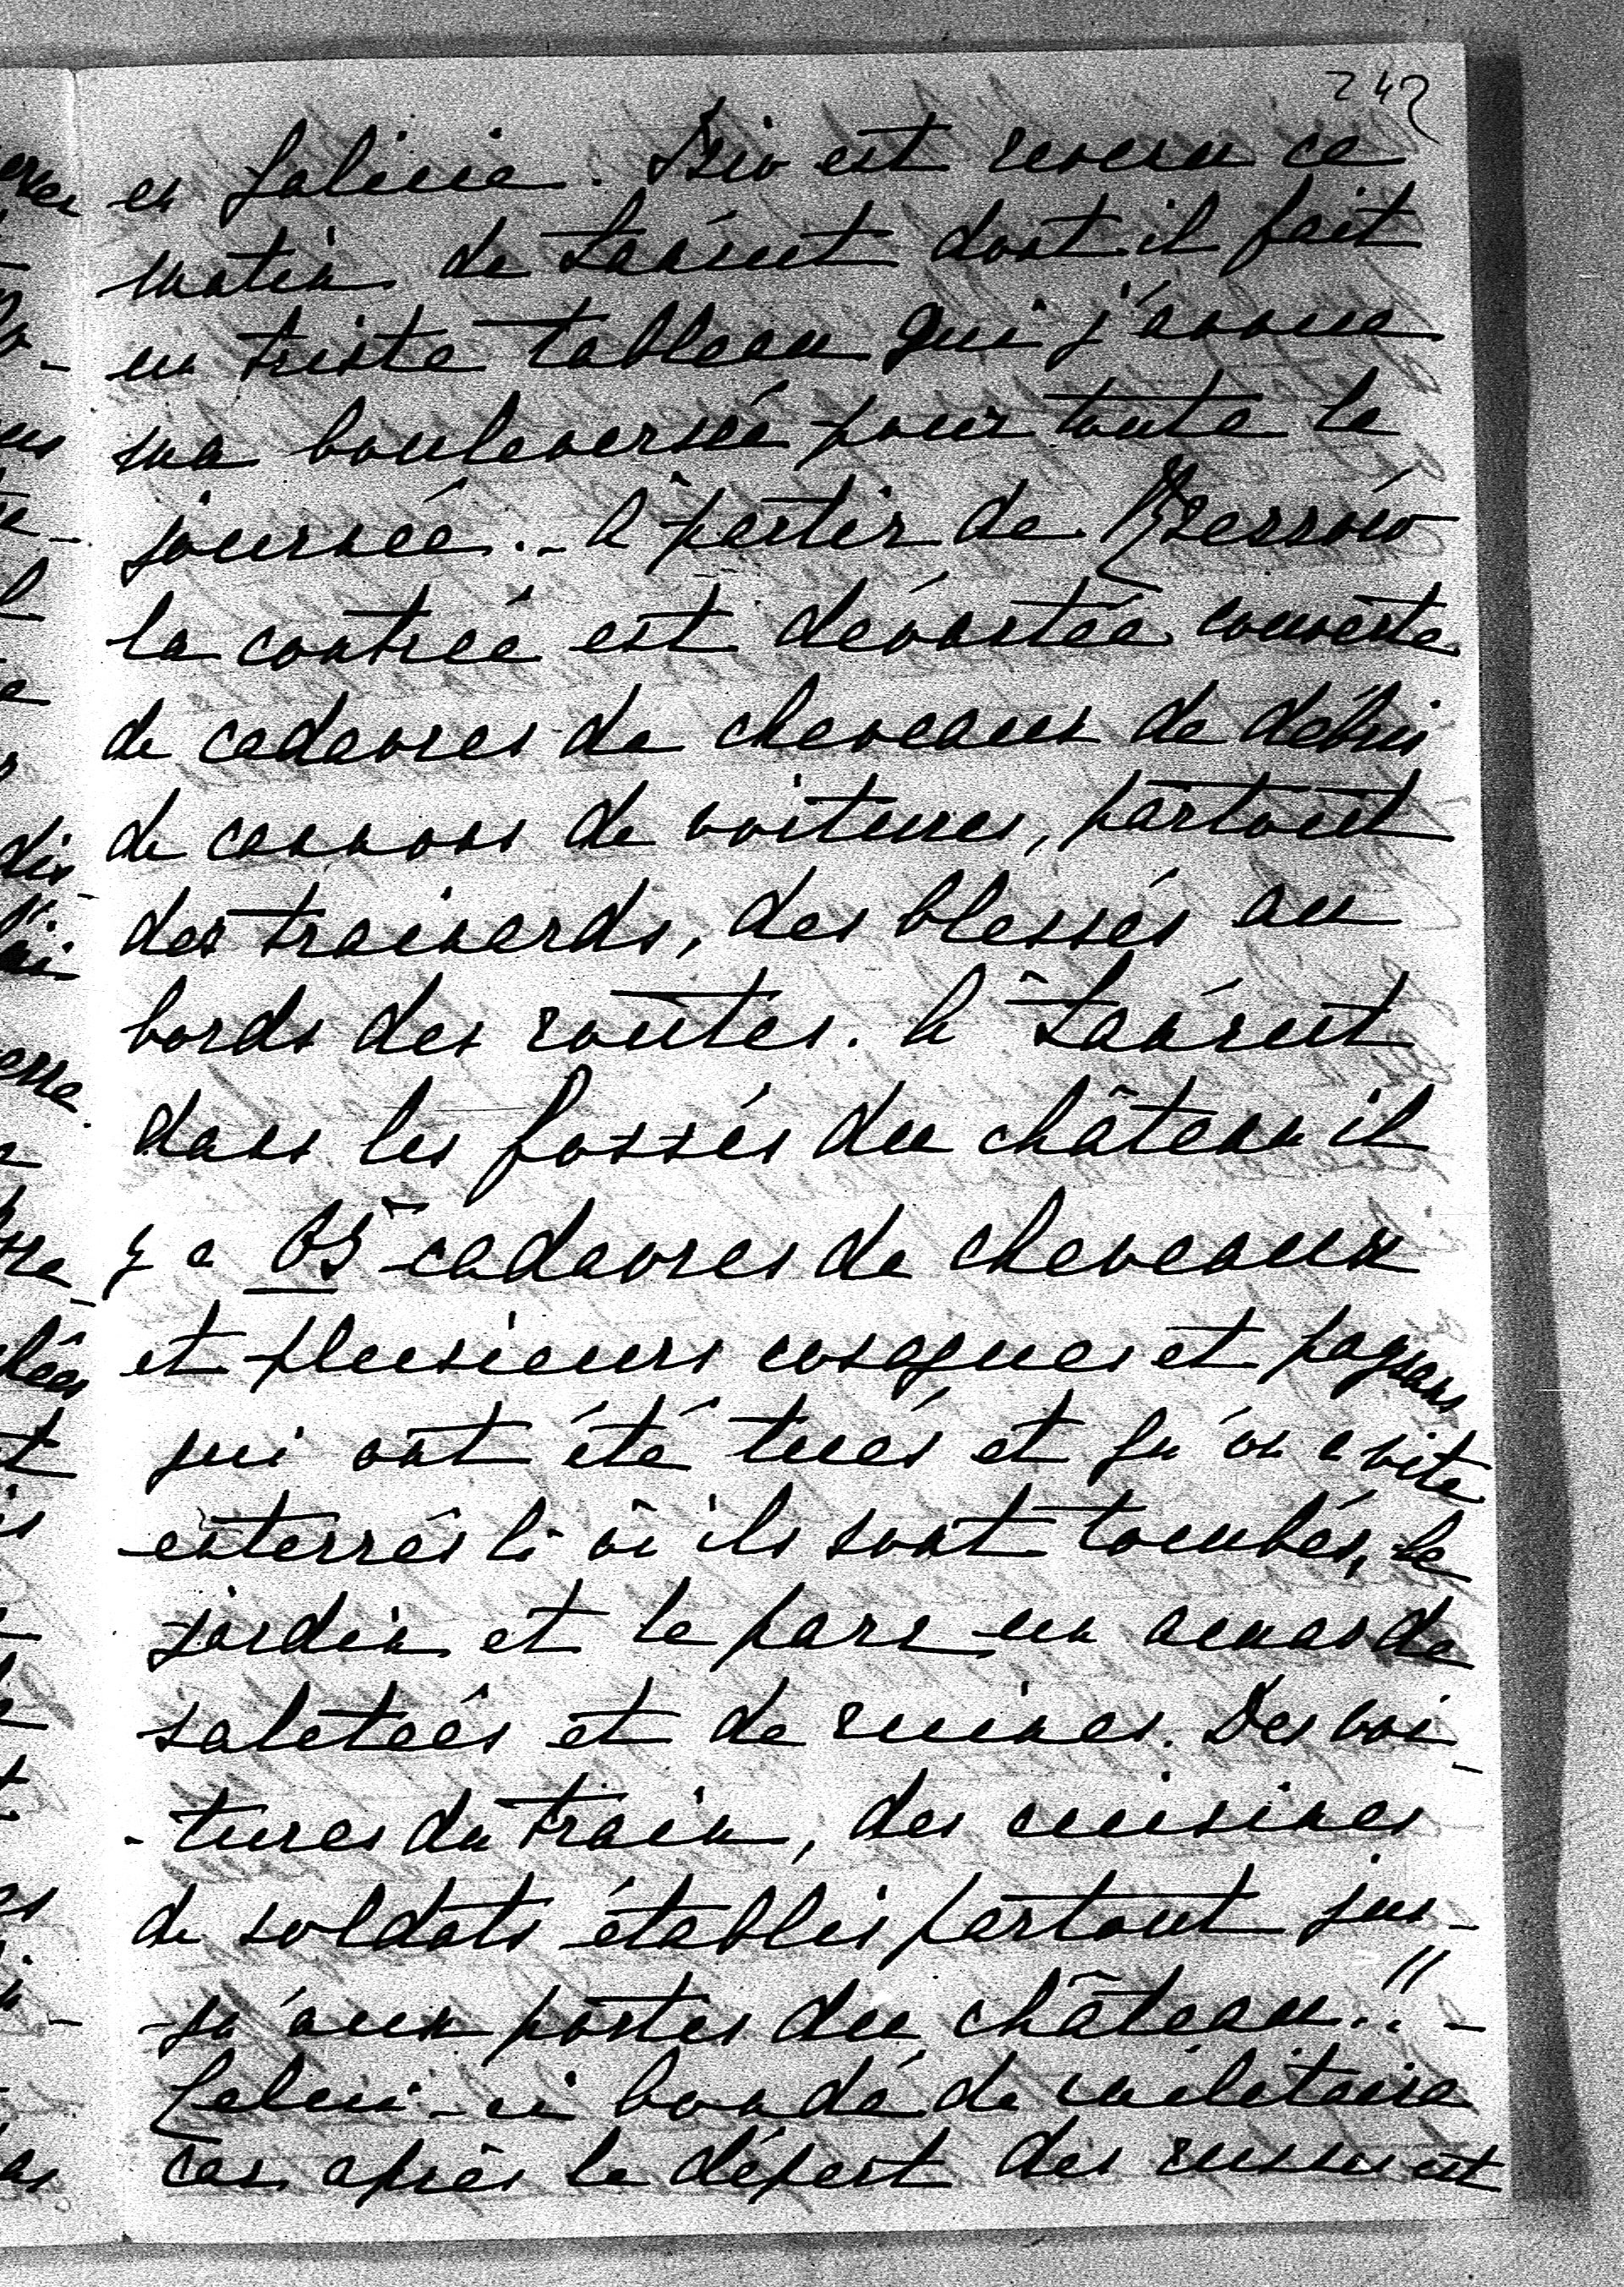 242
en Galicie. Józio est revenu ce
matin de Łańcut dont il fait
un triste tableau qui j'avoue
m'a bouleversée pour toute la
journée.. A partir de Rzeszów
la contrée est dévastée couverte
de cadavres de cheveaux de débris
de cannons de voitures, partout
des trainards, des blessés au
bords des routes. A Łańcut
dans les fossés du château il
y a cadavres de cheveaux
et plusieurs cosaques et paysans
qui ont été tués et qu'on a vite
enterrés là où ils sont tombés, le
jardin et le parc un amas de
saletées et de ruines. Des voi-
-tures du train, des cuisines
de soldats établis partout jus-
-qu'aux portes du château!! -
Celui-ci bondé de militaire
car après le départ des russes est